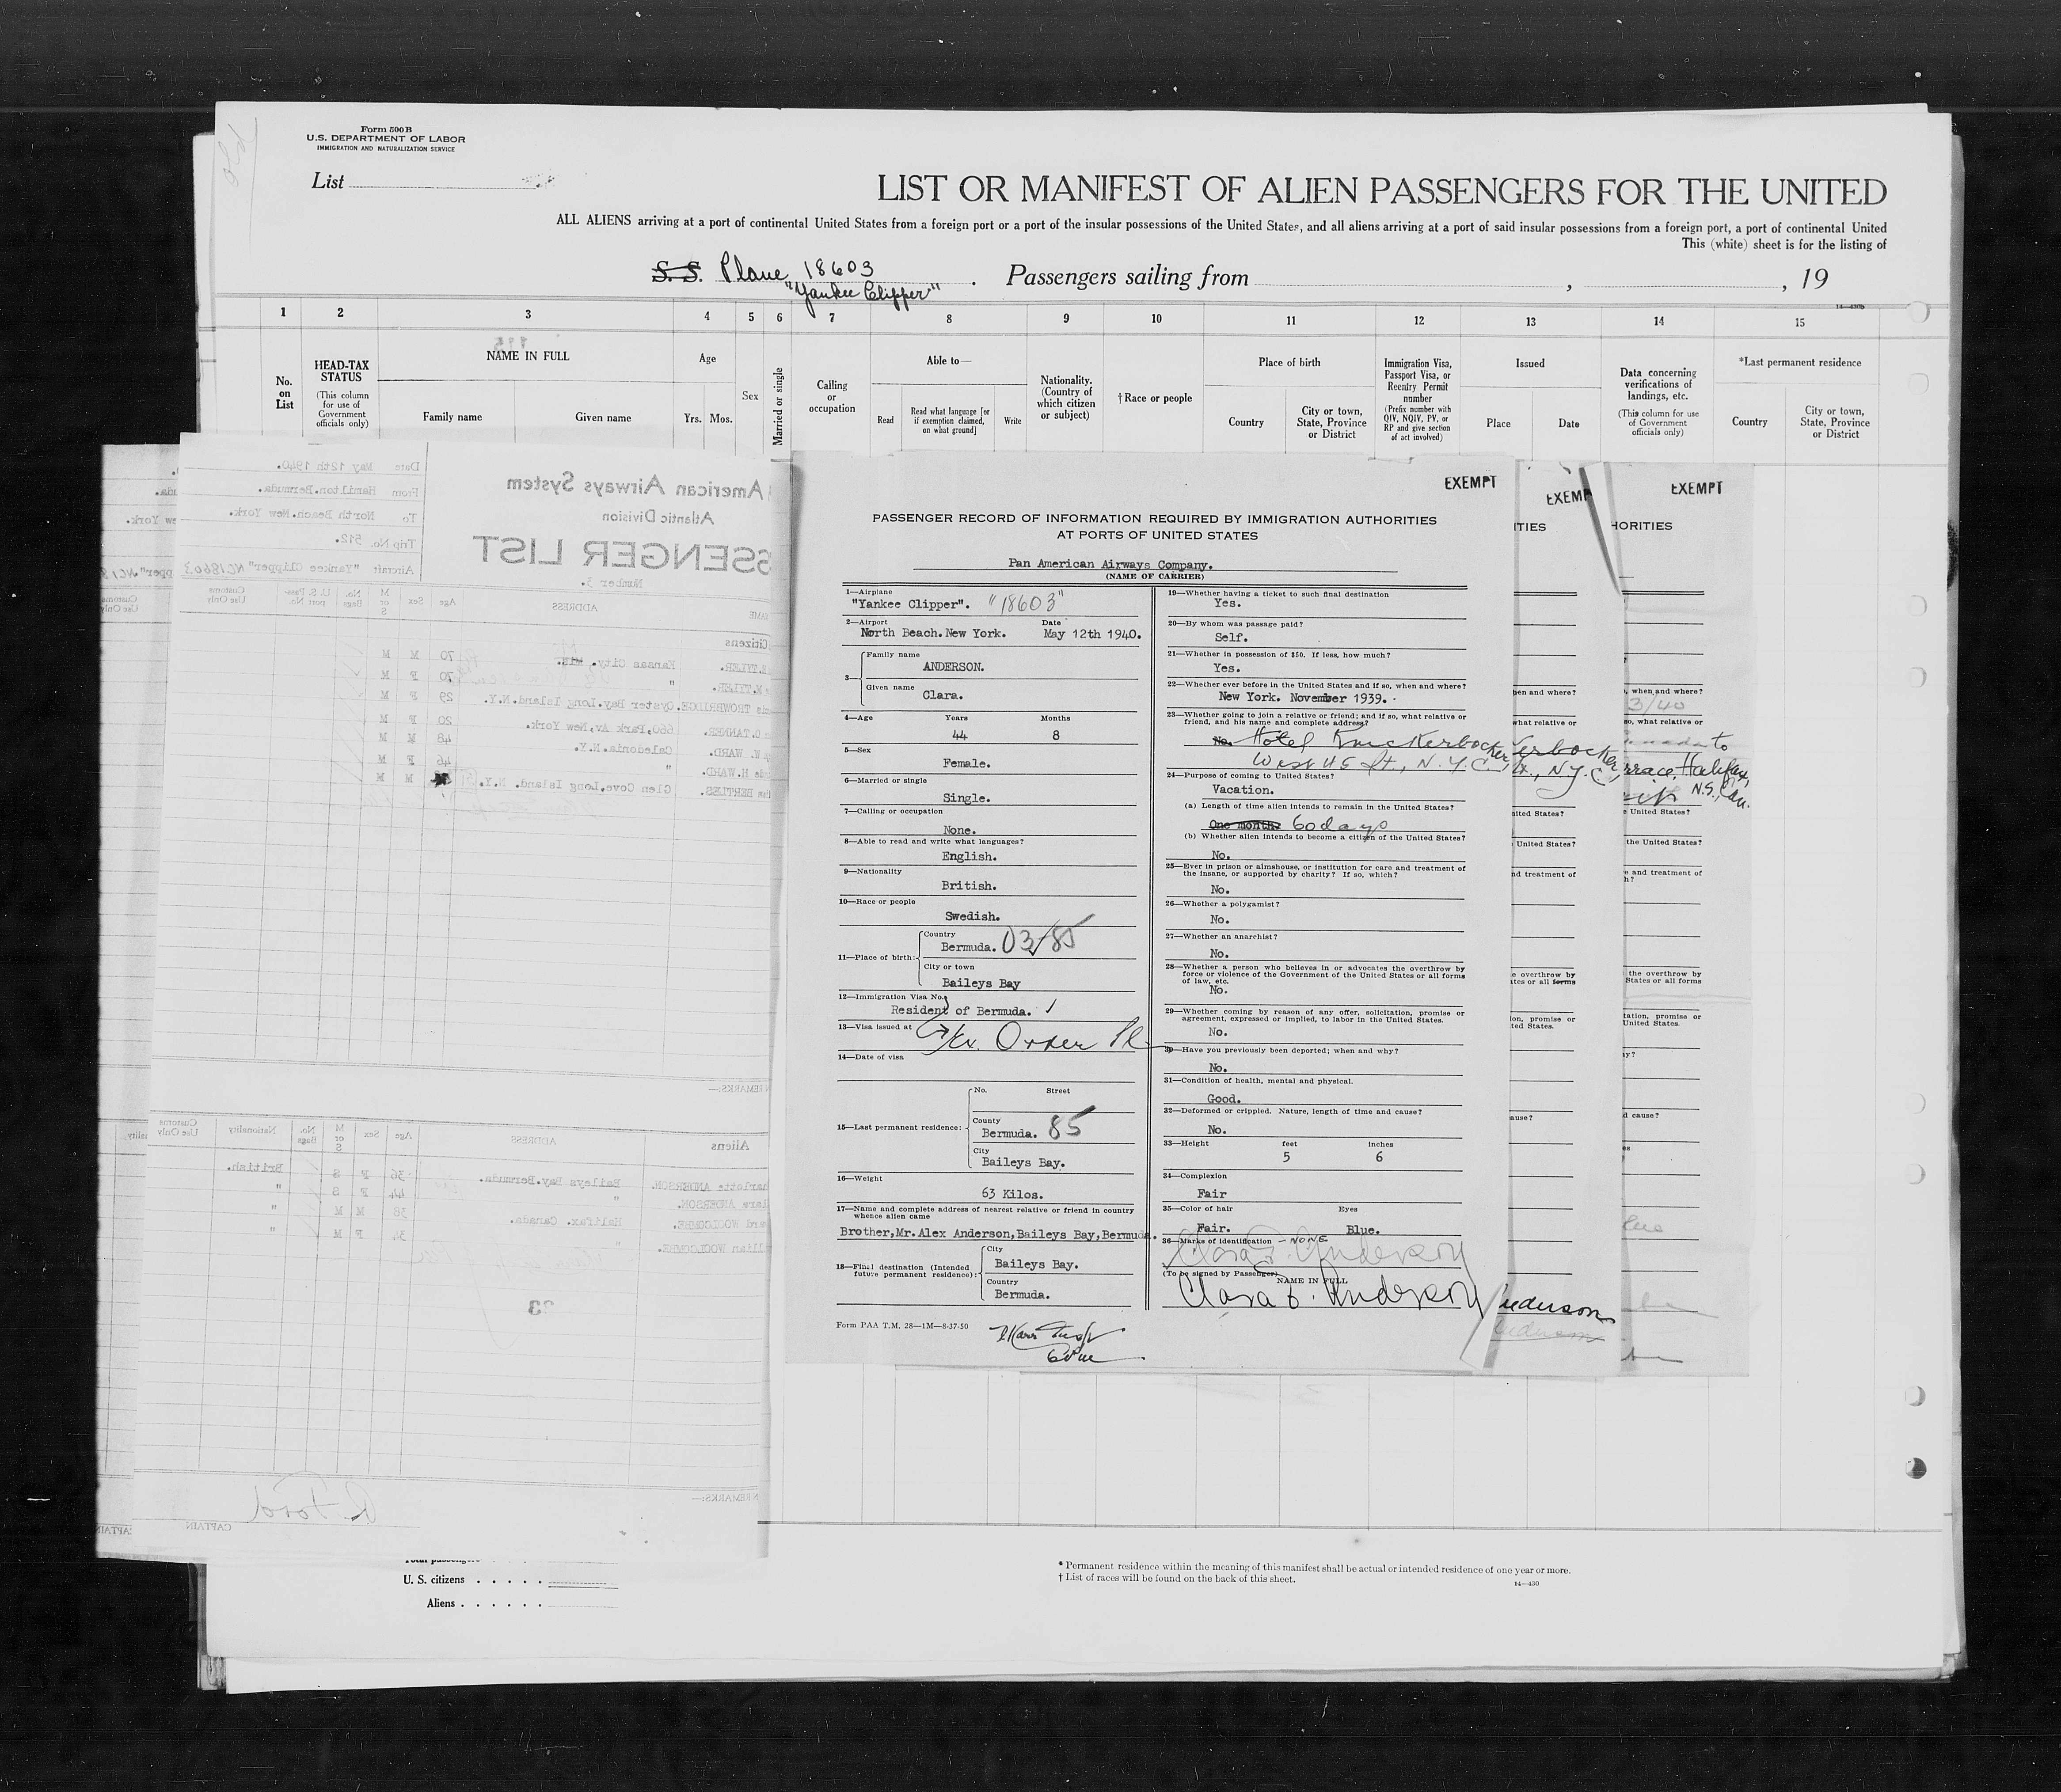 Form 500B
U.S. DEPARTMENT OF LABOR
IMMIGRATION AND NATURALIZATION SERVICE
old
List
LIST OR MANIFEST OF ALIEN PASSENGERS FOR THE UNITED
ALL ALIENS arriving at a port of continental United States from a foreign port or a port of the insular possessions of the United States, and all aliens arriving at a port of said insular possessions from a foreign port, a port of continental United
This (white) sheet is for the listing of
S. S. Plane 18603 "Yankee Clipper" . Passengers sailing from , , 19
14—430b
1 2 3 4 5 6 7 8 9 10 11 12 13 14 15
No. on List
HEAD-TAX STATUS (This column for use of Government officials only)
NAME IN FULL
Family name Given name
Age
Yrs. Mos.
Sex
Married or single
Calling or occupation
Able to—
Read
Read what language [or if exemption claimed, on what ground]
Write
Nationality. (Country of which citizen or subject)
†Race or people
Place of birth
Country
City or town, State, Province or District
Immigration Visa, Passport Visa, or Reentry Permit number (Prefix number with QIV, NQIV, PV, or RP and give section of act involved)
Issued
Place Date
Data concerning verifications of landings, etc. (This column for use of Government officials only)
*Last permanent residence
Country
City or town, State, Province or District
American Airways System
Atlantic Division
SSENGER LIST
Number 3.
Date May 12th 1940.
From Hamilton.Bermuda.
To North Beach.New York.
Trip No. 512.
Aircraft "Yankee Clipper" NC18603
AME ADDRESS Age Sex M or S No. Bags U. S. Pass-port No. Customs Use Only
Citizens
TYLER. Kansas City. 70 M M
TYLER. " 70 F M
TROWBRIDGE. Oyster Bay.Long Island.N.Y. 29 F M
TANNER. 660,Park Av,New York. 20 F M
W. WARD. Caledonia.N.Y. 48 M M
H.WARD. " 46 F M
BERTLES. Glen Cove,Long Island. N.Y. M M
REMARKS:—
Aliens ADDRESS Age Sex M or S No. Bags Nationality Customs Use Only
harlotte ANDERSON. Baileys Bay.Bermuda. 36 F S British.
lara ANDERSON. " 44 F S "
ard WOOLCOMBE. Halifax. Canada. 38 M M "
llian WOOLCOMBE. " 34 F M "
REMARKS:—
CAPTAIN
EXEMPT
PASSENGER RECORD OF INFORMATION REQUIRED BY IMMIGRATION AUTHORITIES
AT PORTS OF UNITED STATES
Pan American Airways Company.
(NAME OF CARRIER)
1—Airplane
"Yankee Clipper". "18603"
2—Airport Date
North Beach.New York. May 12th 1940.
3— Family name
ANDERSON.
Given name
Clara.
4—Age Years Months
44 8
5—Sex
Female.
6—Married or single
Single.
7—Calling or occupation
None.
8—Able to read and write what languages?
English.
9—Nationality
British.
10—Race or people
Swedish.
11—Place of birth: Country
Bermuda. 03-85
City or town
Baileys Bay
12—Immigration Visa No.
Resident of Bermuda.
13—Visa issued at
Ex. Order
14—Date of visa
15—Last permanent residence: No. Street
County
Bermuda. 85
City
Baileys Bay.
16—Weight
63 Kilos.
17—Name and complete address of nearest relative or friend in country
whence alien came
Brother,Mr.Alex Anderson,Baileys Bay,Bermuda.
18—Final destination (Intended future permanent residence): City
Baileys Bay.
Country
Bermuda.
Form PAA T.M. 28—1M—8-37-50
19—Whether having a ticket to such final destination
Yes.
20—By whom was passage paid?
Self.
21—Whether in possession of $50. If less, how much?
Yes.
22—Whether ever before in the United States and if so, when and where?
New York. November 1939.
23—Whether going to join a relative or friend; and if so, what relative or
friend, and his name and complete address?
No. Hotel Knickerbocker,
West 45 St., N.Y.C.
24—Purpose of coming to United States?
Vacation.
(a) Length of time alien intends to remain in the United States?
One month. 60 days
(b) Whether alien intends to become a citizen of the United States?
No.
25—Ever in prison or almshouse, or institution for care and treatment of
the insane, or supported by charity? If so, which?
No.
26—Whether a polygamist?
No.
27—Whether an anarchist?
No.
28—Whether a person who believes in or advocates the overthrow by
force or violence of the Government of the United States or all forms
of law, etc.
No.
29—Whether coming by reason of any offer, solicitation, promise or
agreement, expressed or implied, to labor in the United States.
No.
30—Have you previously been deported; when and why?
No.
31—Condition of health, mental and physical.
Good.
32—Deformed or crippled. Nature, length of time and cause?
No.
33—Height feet inches
5 6
34—Complexion
Fair
35—Color of hair Eyes
Fair. Blue.
36—Marks of identification - NONE
(To be signed by Passenger) NAME IN FULL
Clara E. Anderson
EXEMP
ITIES
EXEMPT
HORITIES
3/40
erbocker
N.Y.C.
to
rrace, Halifax,
N.S., Can.
nderson
Total passengers
U. S. citizens . . . . .
Aliens . . . . . .
* Permanent residence within the meaning of this manifest shall be actual or intended residence of one year or more.
† List of races will be found on the back of this sheet.
14—430